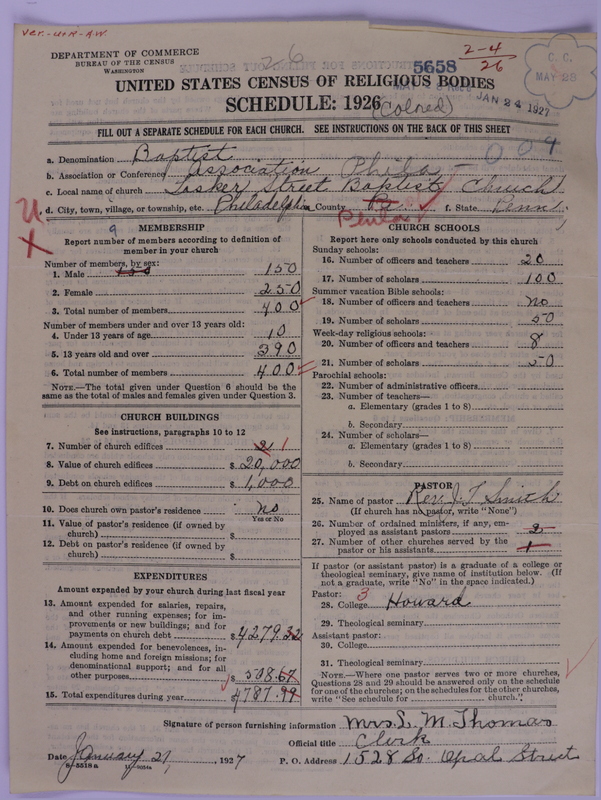 Ver.-U+R-A.W.
DEPARTMENT OF COMMERCE
BUREAU OF THE CENSUS
WASHINGTON
26
5658
2-4
26
C. C.
MAY 28
UNITED STATES CENSUS OF RELIGIOUS BODIES
SCHEDULE: 1926 (Colored)
JAN 24 1927
FILL OUT A SEPARATE SCHEDULE FOR EACH CHURCH. SEE INSTRUCTIONS ON THE BACK OF THIS SHEET
a. Denomination Baptist
004
b. Association or Conference Association Phila-
c. Local name of church Tasker Street Baptist Church
d. City, town, village, or township, etc. Philadelphia County Phila f. State Penn
9
U
X
MEMBERSHIP
Report number of members according to definition of member in your church
Number of members, by sex:
1. Male 150 150
2. Female 250
3. Total number of members 400
Number of members under and over 13 years old:
4. Under 13 years of age 10
5. 13 years old and over 390
6. Total number of members 400
NOTE.—The total given under Question 6 should be the
same as the total of males and females given under Question 3.
CHURCH BUILDINGS
See instructions, paragraphs 10 to 12
7. Number of church edifices 2 1
8. Value of church edifices $ 20,000
9. Debt on church edifices $ 1,000
10. Does church own pastor's residence no
Yes or No
11. Value of pastor's residence (if owned by
church) $
12. Debt on pastor's residence (if owned by
church) $
EXPENDITURES
Amount expended by your church during last fiscal year
13. Amount expended for salaries, repairs,
and other running expenses; for im-
provements or new buildings; and for
payments on church debt $ 4279.32
14. Amount expended for benevolences, in-
cluding home and foreign missions; for
denominational support; and for all
other purposes $ 508.67
15. Total expenditures during year 4787.99
CHURCH SCHOOLS
Report here only schools conducted by this church
Sunday schools:
16. Number of officers and teachers 20
17. Number of scholars 100
Summer vacation Bible schools:
18. Number of officers and teachers no
19. Number of scholars 50
Week-day religious schools:
20. Number of officers and teachers 8
21. Number of scholars 50
Parochial schools:
22. Number of administrative officers
23. Number of teachers—
a. Elementary (grades 1 to 8)
b. Secondary
24. Number of scholars—
a. Elementary (grades 1 to 8)
b. Secondary
PASTOR
25. Name of pastor Rev. J. T. Smith
(If church has no pastor, write "None")
26. Number of ordained ministers, if any, em-
ployed as assistant pastors 2
27. Number of other churches served by the
pastor or his assistants 1
If pastor (or assistant pastor) is a graduate of a college or
theological seminary, give name of institution below. (If
not a graduate, write "No" in the space indicated.)
Pastor: 3
28. College Howard
29. Theological seminary
Assistant pastor:
30. College
31. Theological seminary
NOTE.—Where one pastor serves two or more churches,
Questions 28 and 29 should be answered only on the schedule
for one of the churches; on the schedules for the other churches,
write "See schedule for church."
Signature of person furnishing information Mrs. L. M. Thomas
Official title Clerk
Date January 21, 1927 P. O. Address 1528 So. Opal Street
8-5518a